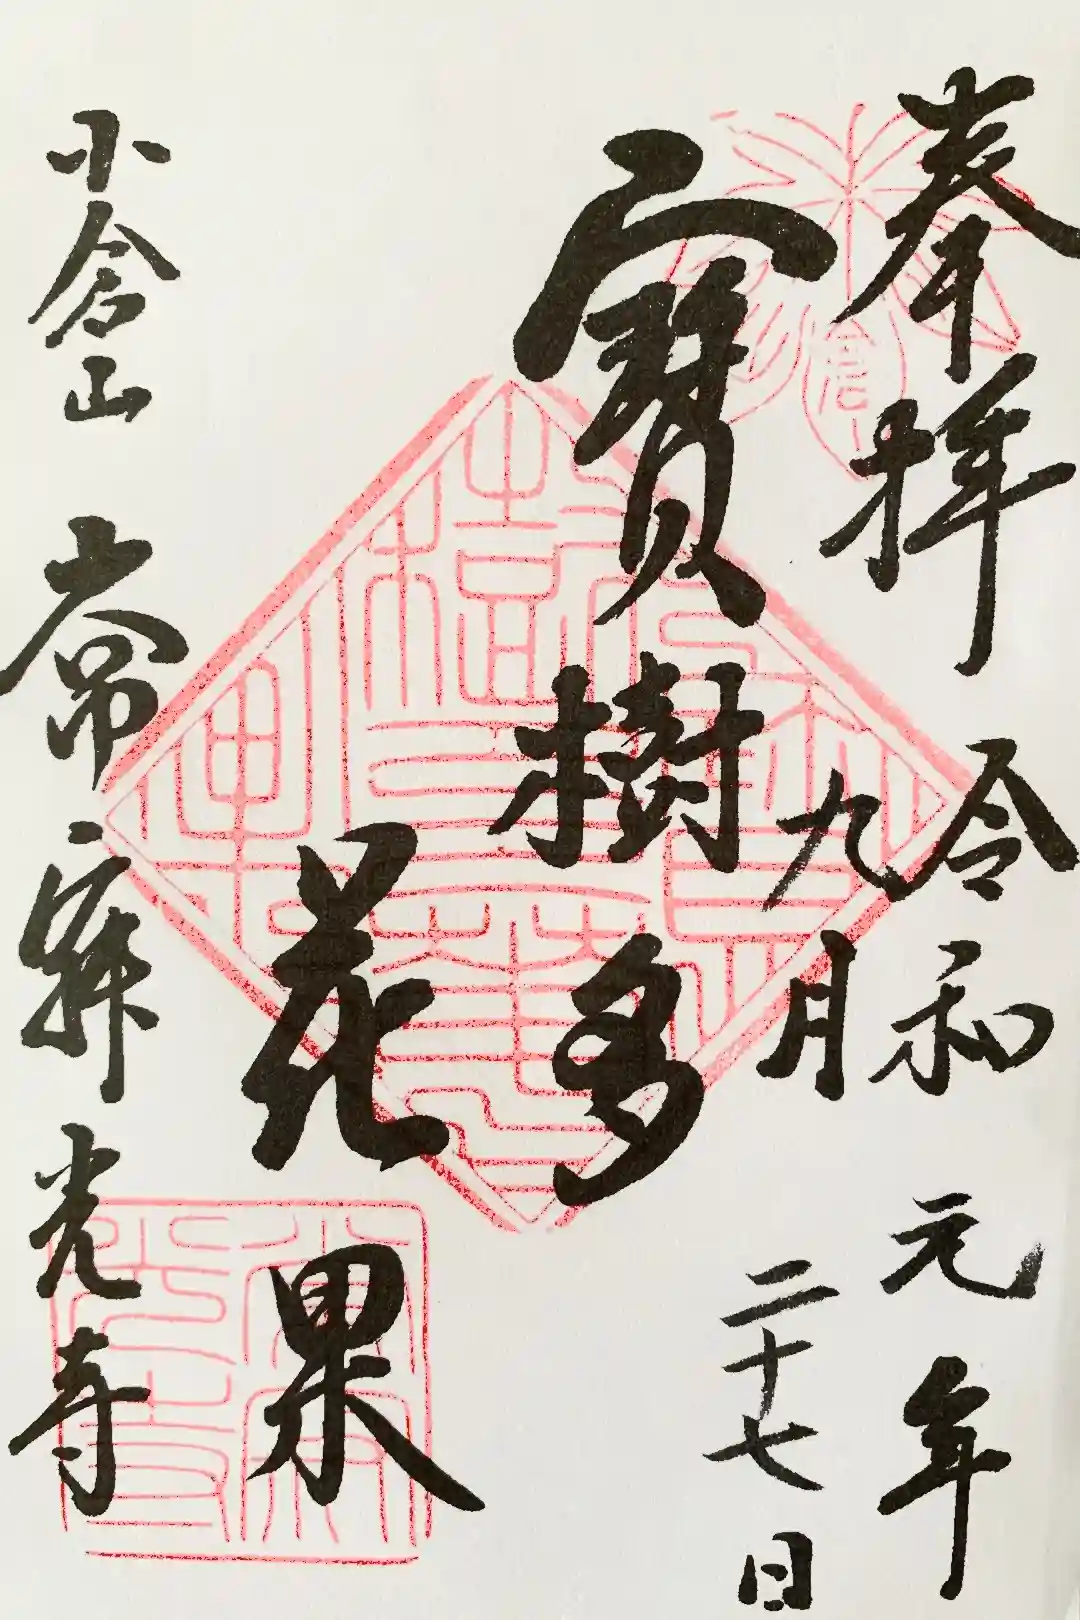 奉拝 令和元年
九月二十七日
寳樹多
花果
小倉山 常寂光寺